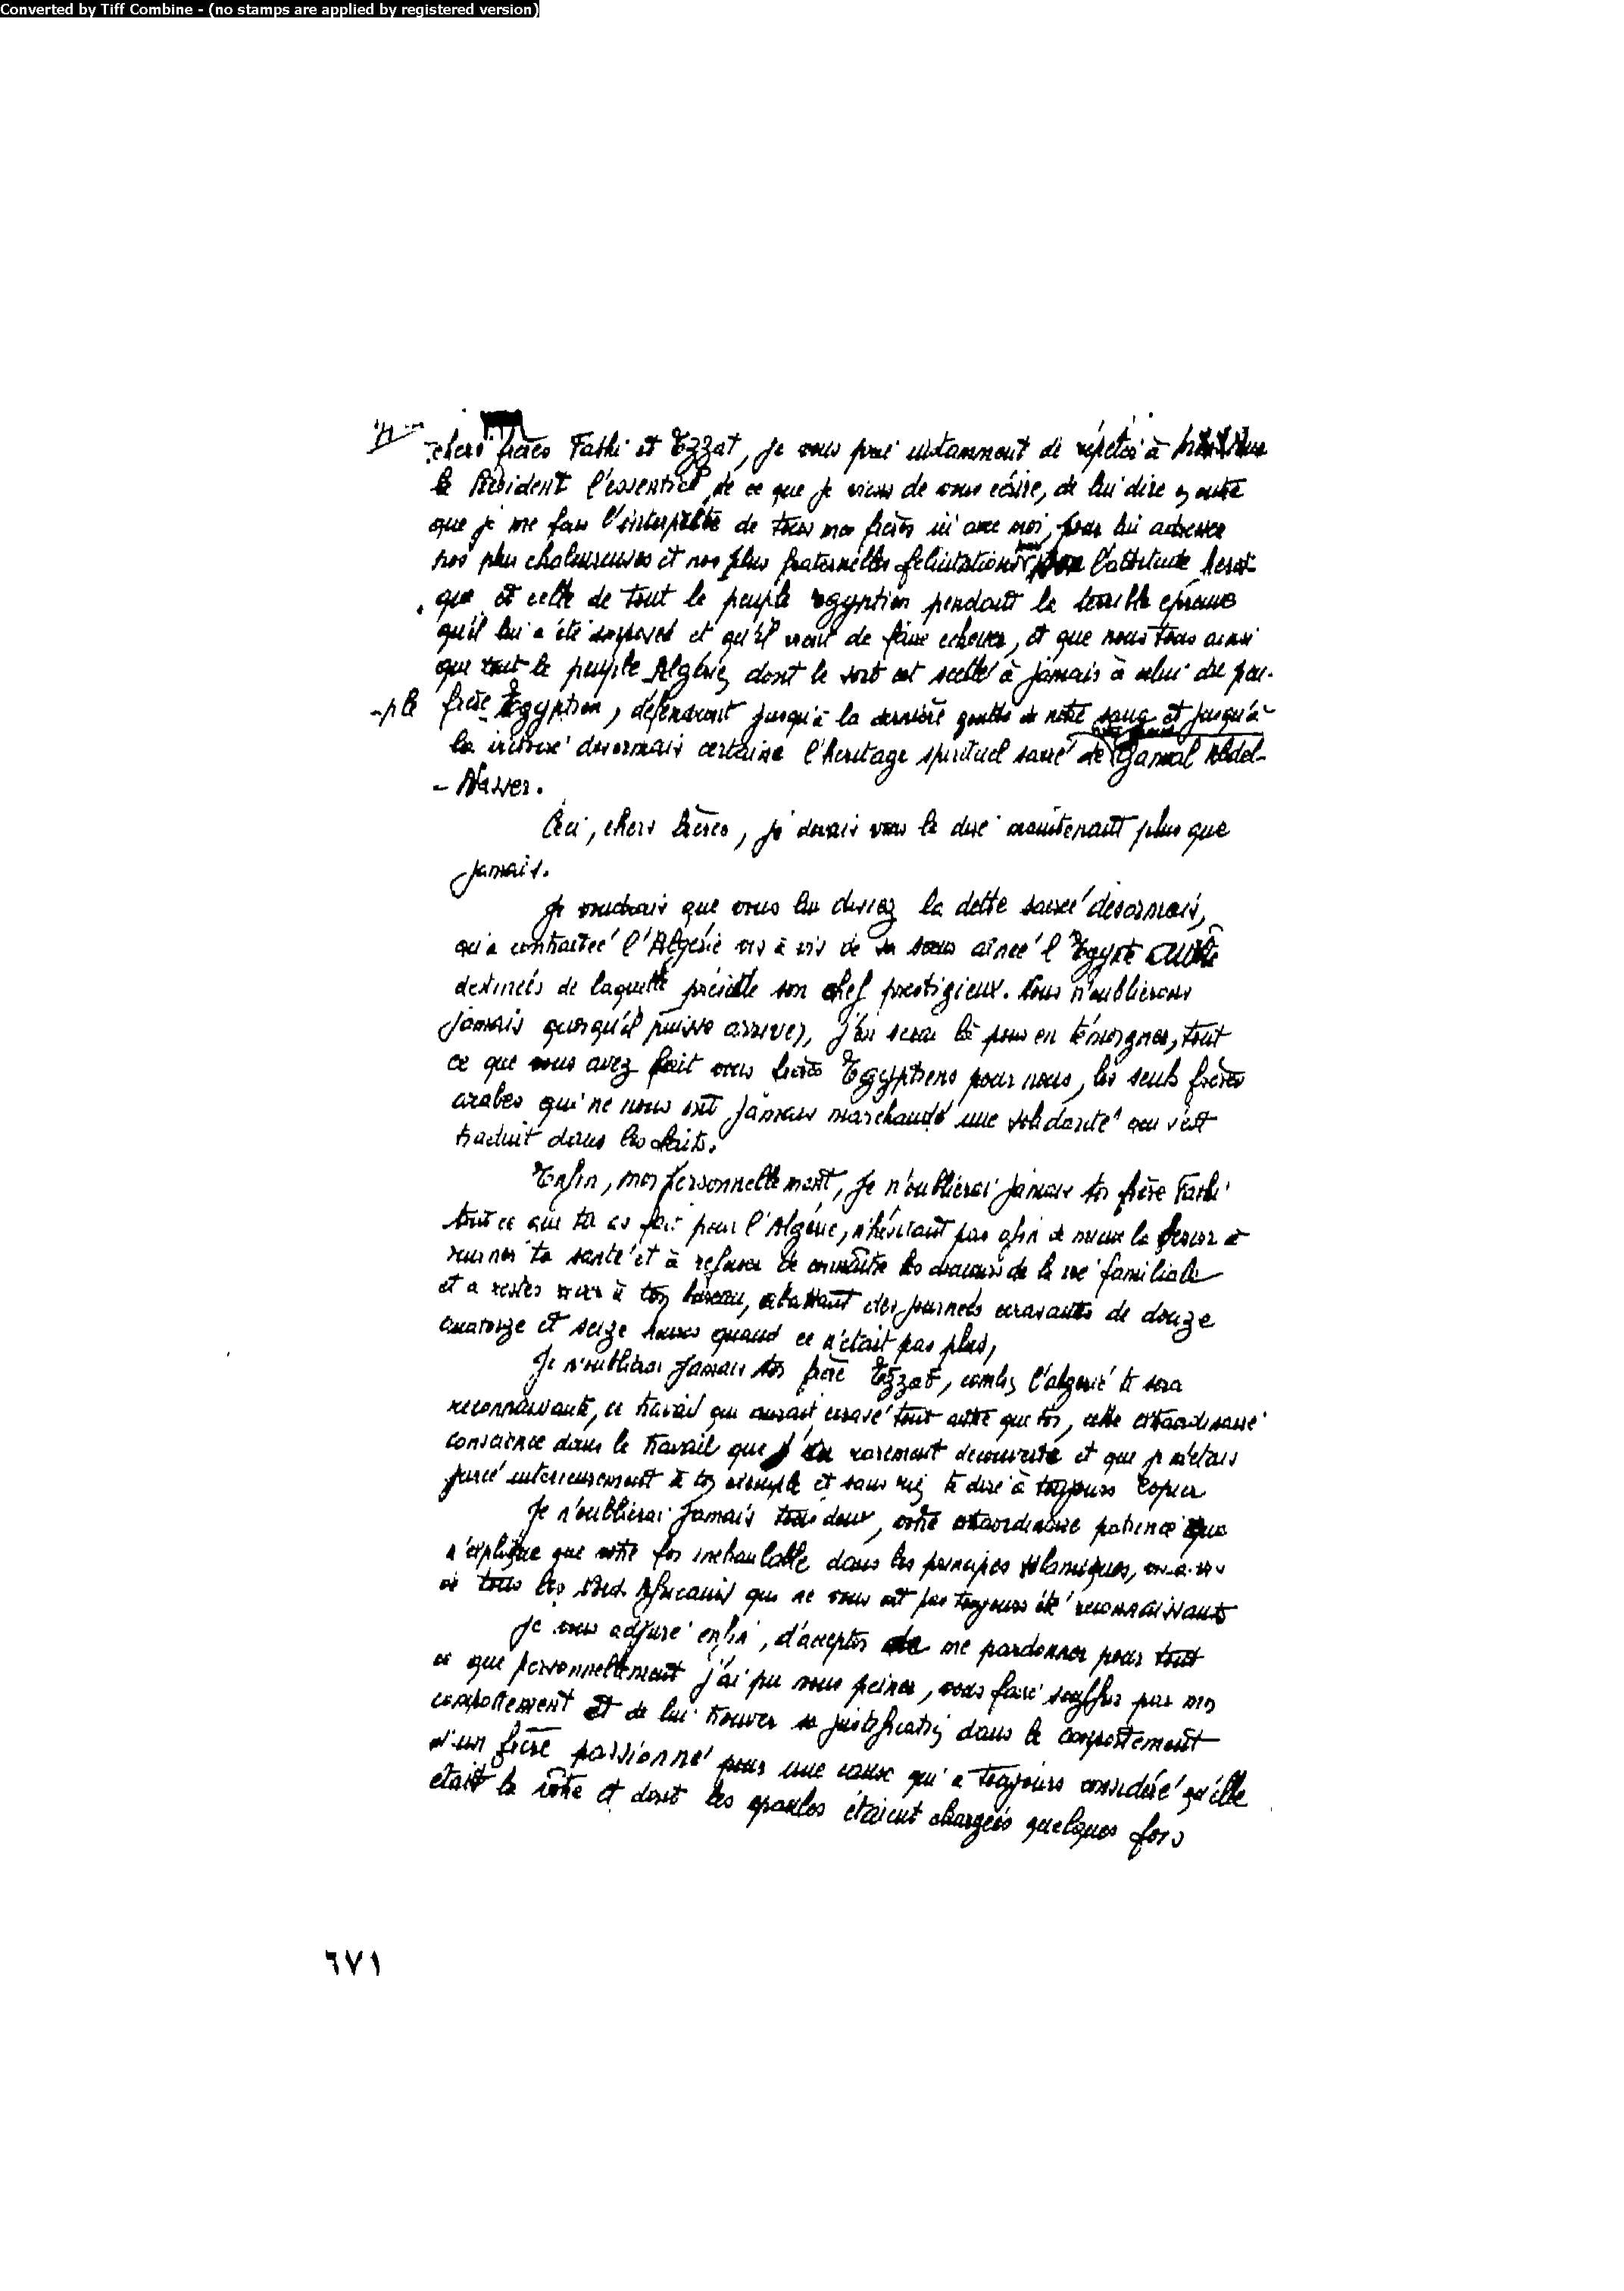 Converted by Tiff Combine - (no stamps are applied by registered version)
chers frères Fathi et Ezzat, je vous prie instamment de répéter à
le Président l'essentiel de ce que je viens de vous écrire, de lui dire en outre
que je me fais l'interprète de tous mes frères ici avec moi, pour lui adresser
nos plus chaleureuses et nos plus fraternelles félicitations pour l'attitude heroï-
que et celle de tout le peuple Egyptien pendant la terrible épreuve
qu'il lui a été imposed et qu'il vient de faire echouer, et que nous tous ainsi
que tout le peuple Algérien dont le sort est scellé à jamais à celui du peu-
-ple frère Egyptien, défendront jusqu'à la dernière goutte de notre sang et jusqu'à
la victoire désormais certaine l'heritage spirituel sacré de Gamal Abdel-
- Nasser.
Ceci, chers frères, je devais vous le dire maintenant plus que
jamais.
Je voudrais que vous lui disiez la dette sacrée désormais,
qu'a contractée l'Algérie vis à vis de sa soeur ainée l'Egypte
destinées de laquelle préside son chef prestigieux. Nous n'oublierons
jamais quoiqu'il puisse arriver, j'en serai là pour en témoigner, tout
ce que vous avez fait vous frères Egyptiens pour nous, les seuls frères
arabes qui ne nous ont jamais marchandé une solidarité qui s'est
traduit dans les faits.
Enfin, moi personnellement, je n'oublierai jamais toi frère Fathi
tout ce que tu as fait pour l'Algérie, n'hésitant pas afin de mieux la servir à
ruiner ta santé et à refuser de connaître les douceurs de la vie familiale
et a rester river à ton bureau, abattant des journées ecrasantes de douze
quatorze et seize heures quand ce n'était pas plus,
Je n'oublierai jamais toi frère Ezzat, combien l'algerie te sera
reconnaissante, ce travail qui aurait ecrasé tout autre que toi, cette extraordinaire
conscience dans le travail que j'ai rarement decouverte et que je m'étais
juré interieurement à ton exemple et sans rien te dire à toujours copier
Je n'oublierai jamais tous deux, votre extraordinaire patience que
n'explique que votre foi inebranlable dans les principes islamiques, vis-à-vis
de tous les Nord Africains qui ne vous ont pas toujours été reconnaissants
Je vous adjure enfin, d'accepter de me pardonner pour tout
ce que personnellement j'ai pu vous peiner, vous faire souffrir par mon
comportement et de lui trouver sa justification dans le comportement
d'un frère passionné pour une cause qu'a toujours considéré qu'elle
était la vôtre et dont les epaules étaient chargées quelques fois
٦٧١